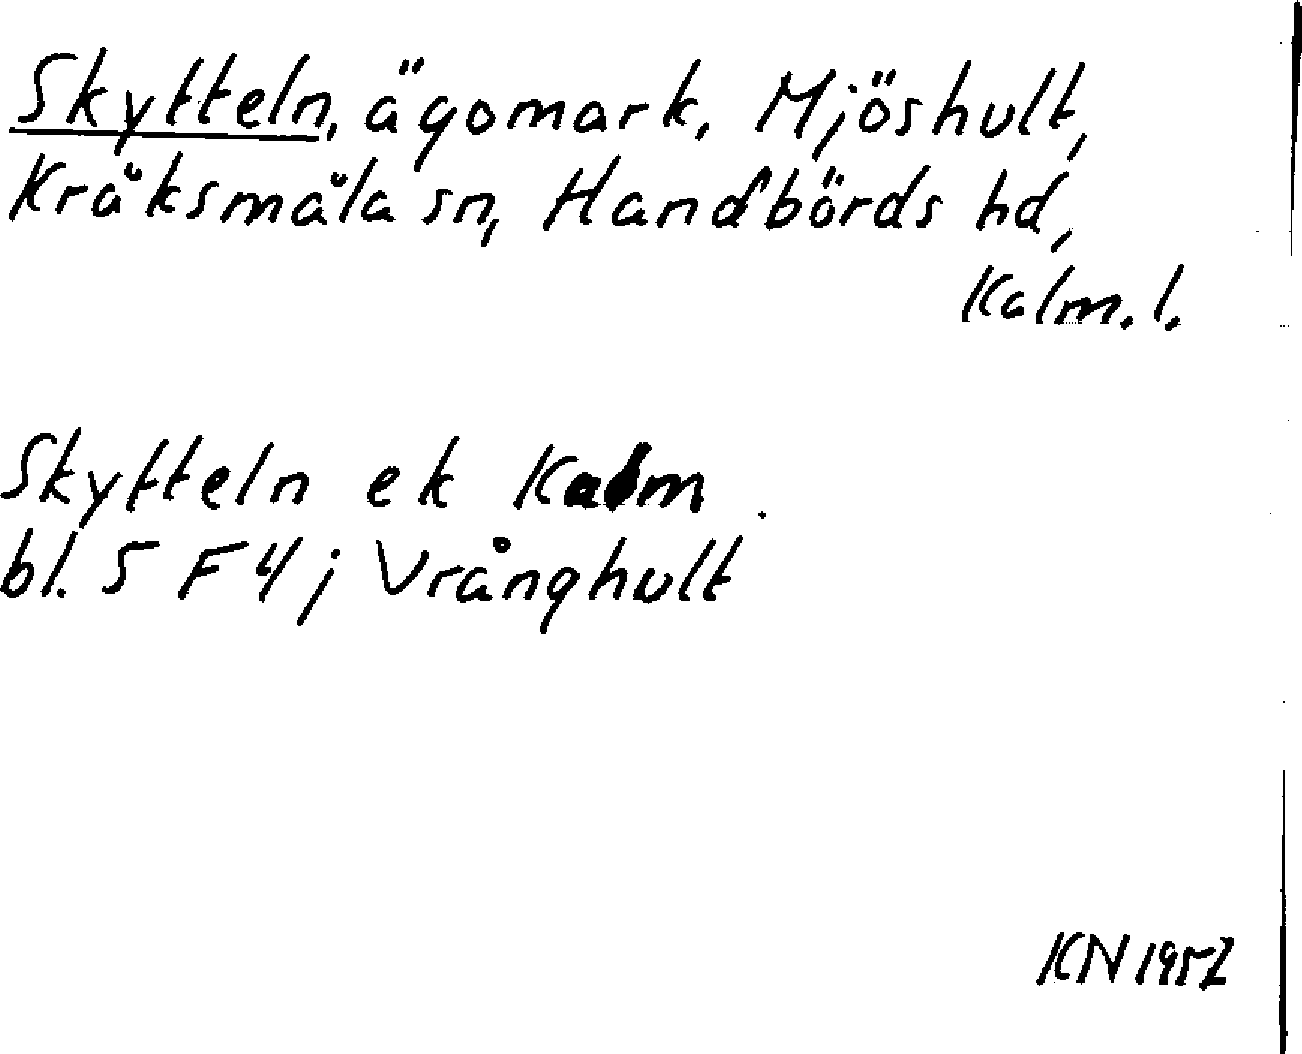 Skytteln, ägomark, Mjöshult,
Kråksmåla sn, Handbörds hd,
Kalm. l.
Skytteln ek Kalm
bl. 5 F 4 j Vrånghult
KN 1952